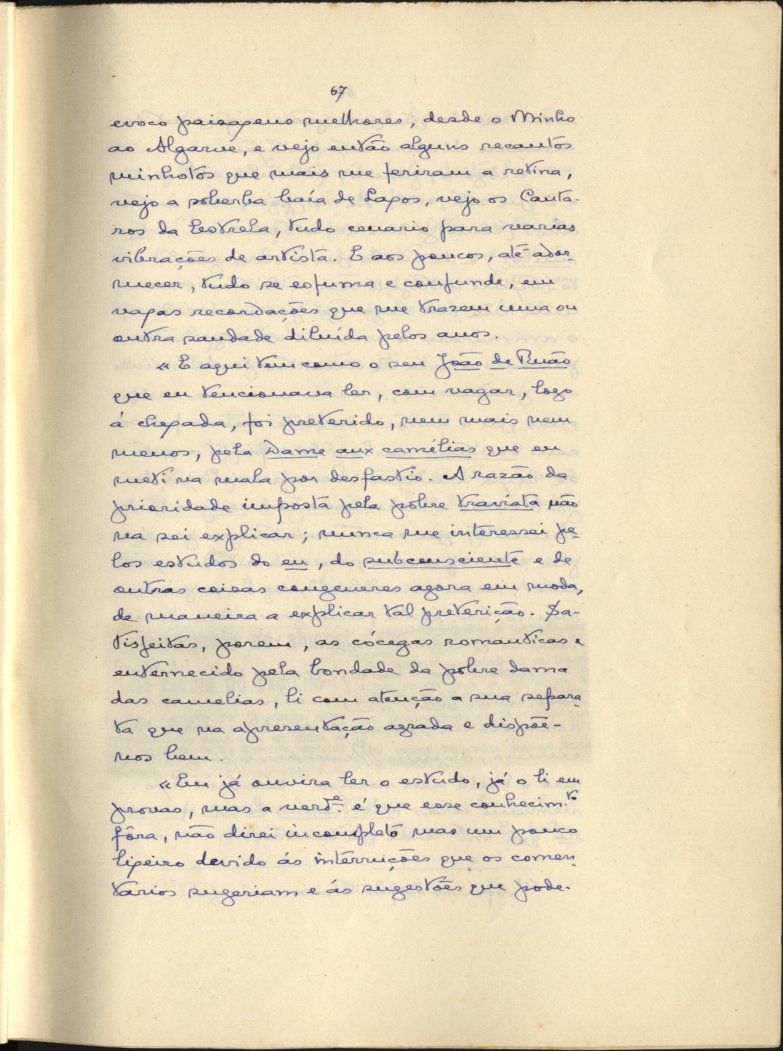 67
evoco paisagens melhores, desde o Minho
ao Algarve, e vejo então alguns recantos
minhotos que mais me feriram a retina,
vejo a soberba baía de Lagos, vejo os Canta-
ros da Estrela, tudo cenario para varias
vibrações de artista. E aos poucos, até ador-
mecer, tudo se esfuma e confunde, em
vagas recordações que me trazem uma ou
outra saudade diluída pelos anos.
«E aqui tem como o seu João de Ruão
que eu tencionava ler, com vagar, logo
á chegada, foi preterido, nem mais nem
menos, pela Dame aux camélias que eu
meti na mala por desfastio. A razão da
prioridade imposta pela pobre traviata não
na sei explicar; nunca me interessei pe-
los estudos do eu, do subconsciente e de
outras coisas congeneres agora em moda,
de maneira a explicar tal preterição. Sa-
tisfeitas, porem, as cócegas romanticas e
enternecido pela bondade da pobre dama
das camelias, li com atenção a sua separa-
ta que na apresentação agrada e dispõe-
nos bem.
«Eu já ouvira ler o estudo, já o li em
provas, mas a verd.e é que esse conhecim.to
fôra, não direi incompleto mas um pouco
ligeiro devido ás interrupções que os comen-
tarios sugeriam e ás sugestões que pode-